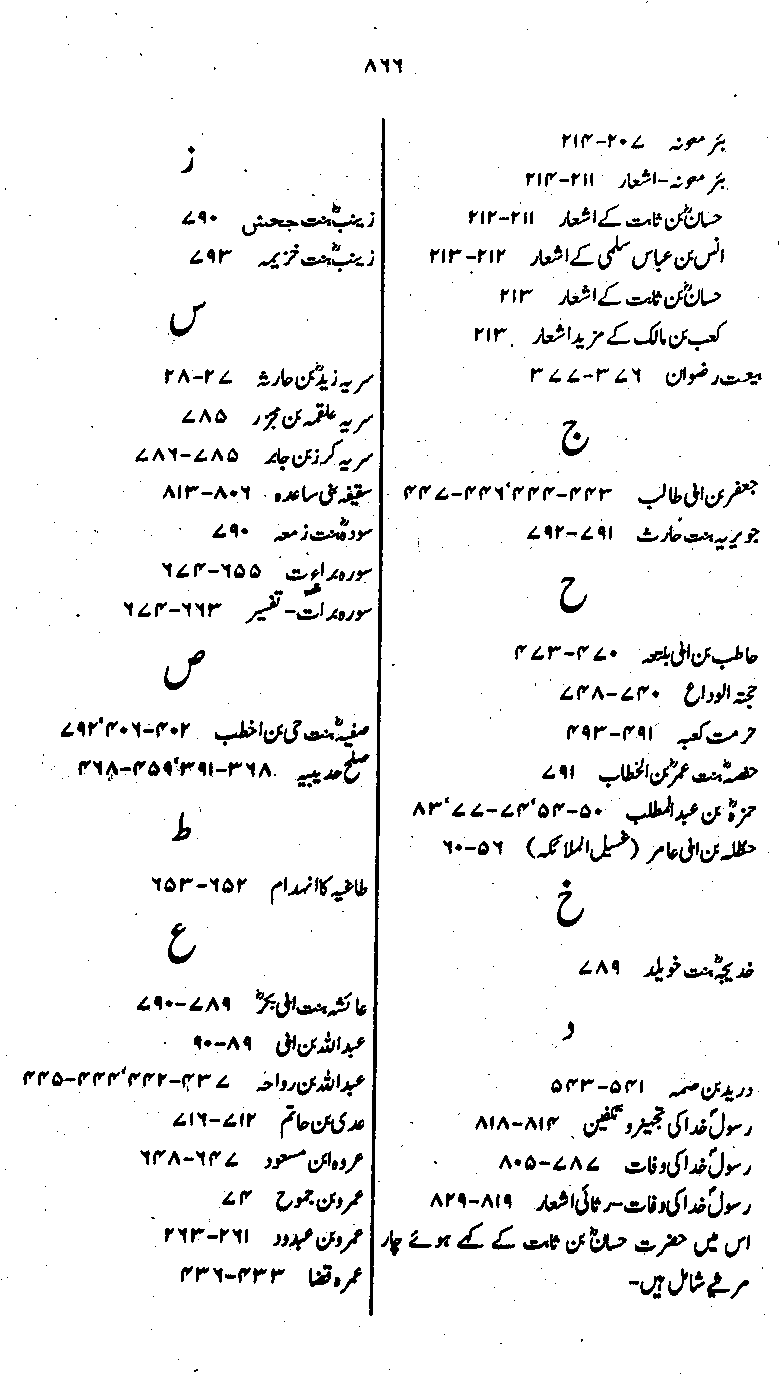 ۸۶۶
بئر معونہ ۲۰۷-۲۱۴
بئر معونہ-اشعار ۲۱۱-۲۱۴
حسانؓ بن ثابت کے اشعار ۲۱۱-۲۱۲
انس بن عباس سلمی کے اشعار ۲۱۲-۲۱۳
حسانؓ بن ثابت کے اشعار ۲۱۳
کعب بن مالک کے مزید اشعار ۲۱۳
بیعت رضوان ۳۷۶-۳۷۷
ج
جعفر بن ابی طالب ۴۴۳-۴۴۴‘۴۴۶-۴۴۷
جویریہ بنت حارث ۷۹۱-۷۹۲
ح
حاطب بن ابی بلتعہ ۴۷۰-۴۷۳
حجتہ الوداع ۷۴۰-۷۴۸
حرمت کعبہ ۴۹۱-۴۹۳
حفصہؓ بنت عمرؓ بن الخطاب ۷۹۱
حمزہؓ بن عبدالمطلب ۵۰-۵۴‘۷۴-۷۷‘۸۳
حنظلہ بن ابی عامر (غسیل الملائکہ) ۵۶-۶۰
خ
خدیجہؓ بنت خویلد ۷۸۹
د
درید بن صمہ ۵۴۱-۵۴۳
رسولؐ خدا کی تجہیز و تکفین ۸۱۴-۸۱۸
رسولؐ خدا کی وفات ۷۸۷-۸۰۵
رسولؐ خدا کی وفات-رثائی اشعار ۸۱۹-۸۲۹
اس میں حضرت حسانؓ بن ثابت کے کہے ہوئے چار
مرثیے شامل ہیں-
ز
زینبؓ بنت جحش ۷۹۰
زینبؓ بنت خزیمہ ۷۹۳
س
سریہ زیدؓ بن حارثہ ۲۷-۲۸
سریہ علقمہ بن مجزر ۷۸۵
سریہ کرز بن جابر ۷۸۵-۷۸۶
سقیفہ بنی ساعدہ ۸۰۶-۸۱۳
سودہؓ بنت زمعہ ۷۹۰
سورہ براءت ۶۵۵-۶۷۴
سورہ برات-تفسیر ۶۶۳-۶۷۴
ص
صفیہؓ بنت حی بن اخطب ۴۰۲-۴۰۶‘۷۹۲
صلح حدیبیہ ۳۶۸-۳۹۱‘۴۵۹-۴۶۸
ط
طاغیہ کا انہدام ۶۵۲-۶۵۳
ع
عائشہ بنت ابی بکرؓ ۷۸۹-۷۹۰
عبداللہ بن ابی ۸۹-۹۰
عبداللہ بن رواحہ ۴۳۷-۴۴۲‘۴۴۴-۴۴۵
عدی بن حاتم ۷۱۲-۷۱۶
عروہ ابن مسعود ۶۴۷-۶۴۸
عمرو بن جموح ۷۴
عمرو بن عبدود ۲۶۱-۲۶۳
عمرہ قضا ۴۳۳-۴۳۶